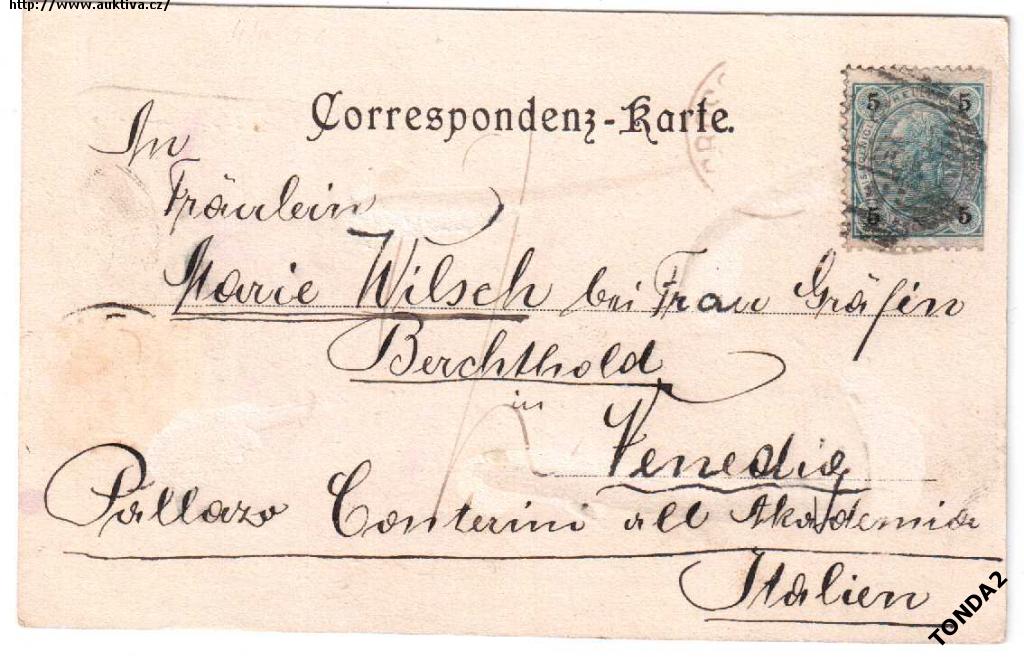 http://www.auktiva.cz/
Correspondenz-Karte.
5 5
5 5
An
Fräulein
Marie Wilsch bei Frau Gräfin
Berchthold
in
Venedig
Pallazo Conterini all Akademia
Italien
TONDA2